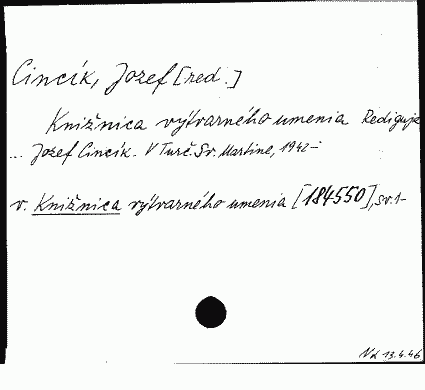 Cincík, Jozef [red.]
Knižnica výtvarného umenia Rediguje
... Jozef Cincík. V Turč. Sv. Martine, 1942-
v. Knižnica výtvarného umenia [184550], sv. 1-
13.4.46